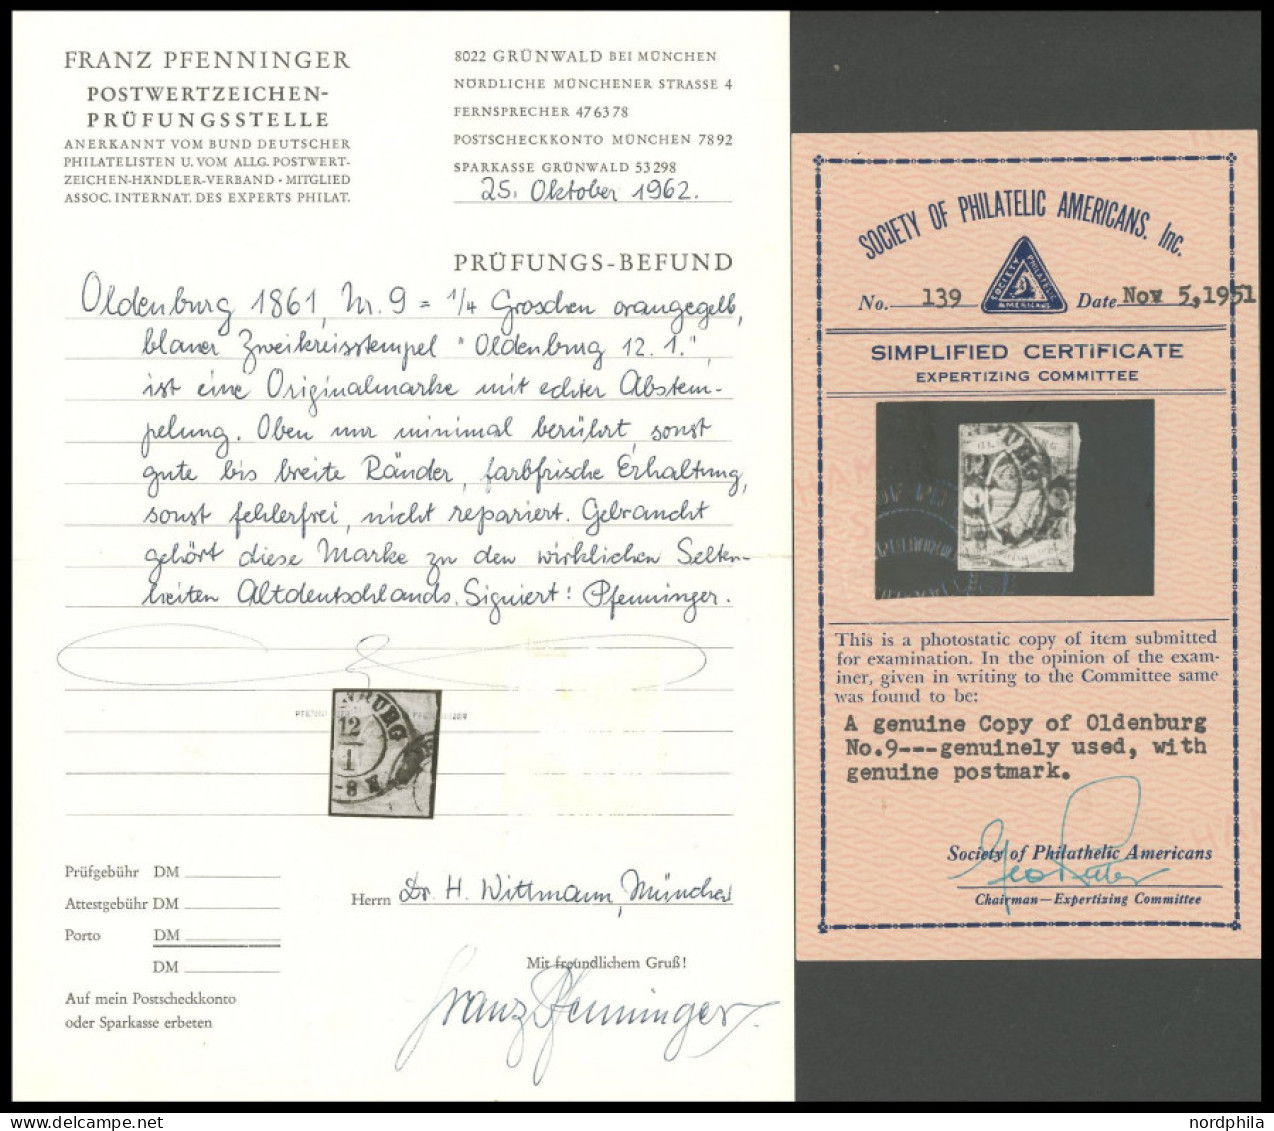 FRANZ PFENNINGER
POSTWERTZEICHEN-
PRÜFUNGSSTELLE
ANERKANNT VOM BUND DEUTSCHER
PHILATELISTEN U. VOM ALLG. POSTWERT-
ZEICHEN-HÄNDLER-VERBAND · MITGLIED
ASSOC. INTERNAT. DES EXPERTS PHILAT.
8022 GRÜNWALD BEI MÜNCHEN
NÖRDLICHE MÜNCHENER STRASSE 4
FERNSPRECHER 476378
POSTSCHECKKONTO MÜNCHEN 7892
SPARKASSE GRÜNWALD 53298
25. Oktober 1962.
PRÜFUNGS-BEFUND
Oldenburg 1861, Nr. 9 = 1/4 Groschen orangegelb,
blauer Zweikreisstempel "Oldenburg 12.1.",
ist eine Originalmarke mit echter Abstem-
pelung. Oben nur minimal berührt, sonst
gute bis breite Ränder, farbfrische Erhaltung,
sonst fehlerfrei, nicht repariert. Gebraucht
gehört diese Marke zu den wirklichen Selten-
heiten Altdeutschlands. Signiert: Pfenninger.
NBURG
12
1
-8
Prüfgebühr DM
Attestgebühr DM
Porto DM
DM
Auf mein Postscheckkonto
oder Sparkasse erbeten
Herrn Dr. H. Wittmann, München
Mit freundlichem Gruß!
Franz Pfenninger.
SOCIETY OF PHILATELIC AMERICANS, Inc.
SOCIETY PHILATELIC AMERICANS
No. 139 Date Nov 5,1951
SIMPLIFIED CERTIFICATE
EXPERTIZING COMMITTEE
This is a photostatic copy of item submitted
for examination. In the opinion of the exam-
iner, given in writing to the Committee same
was found to be:
A genuine Copy of Oldenburg
No.9---genuinely used, with
genuine postmark.
Society of Philathelic Americans
Chairman—Expertizing Committee
nordphila